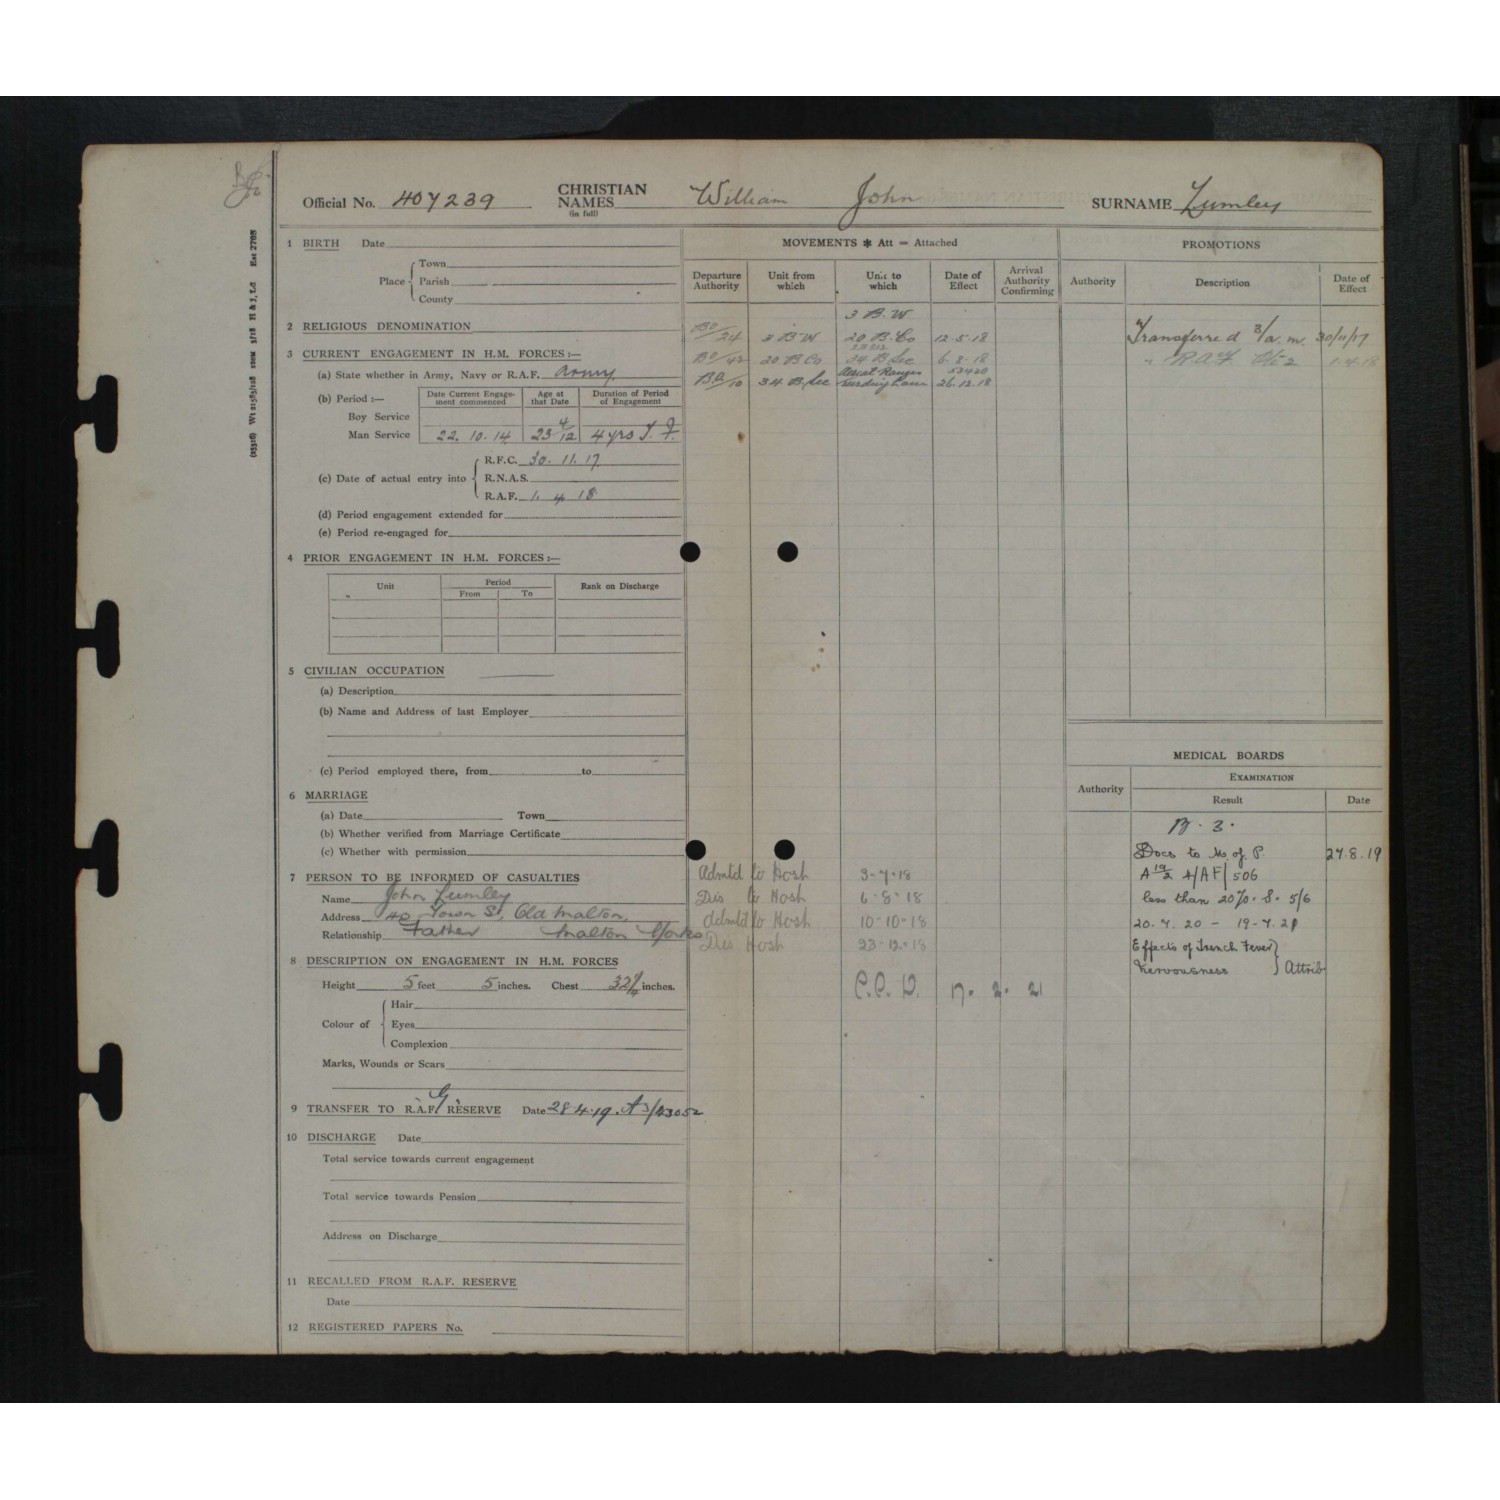 Official No. 407239 CHRISTIAN NAMES (in full) William John SURNAME Lumley
(25516) Wt 21583/218 H & J, Ld Est 2708
1 BIRTH Date
Place Town
Parish
County
2 RELIGIOUS DENOMINATION
3 CURRENT ENGAGEMENT IN H.M. FORCES:—
(a) State whether in Army, Navy or R.A.F. Army
(b) Period:— Date Current Engagement commenced Age at that Date Duration of Period of Engagement
Boy Service
Man Service 22.10.14 23 4/12 4 yrs T.F.
(c) Date of actual entry into R.F.C. 30.11.17
R.N.A.S.
R.A.F. 1.4.18
(d) Period engagement extended for
(e) Period re-engaged for
4 PRIOR ENGAGEMENT IN H.M. FORCES:—
Unit Period Rank on Discharge
From To
5 CIVILIAN OCCUPATION
(a) Description
(b) Name and Address of last Employer
(c) Period employed there, from to
6 MARRIAGE
(a) Date Town
(b) Whether verified from Marriage Certificate
(c) Whether with permission
7 PERSON TO BE INFORMED OF CASUALTIES
Name John Lumley
Address 40 Town St, Old Malton,
Relationship Father Malton Yorks
8 DESCRIPTION ON ENGAGEMENT IN H.M. FORCES
Height 5 feet 5 inches. Chest 32 1/4 inches.
Colour of Hair
Eyes
Complexion
Marks, Wounds or Scars
9 TRANSFER TO R.A.F. G RESERVE Date 28.4.19. A3/43052
10 DISCHARGE Date
Total service towards current engagement
Total service towards Pension
Address on Discharge
11 RECALLED FROM R.A.F. RESERVE
Date
12 REGISTERED PAPERS No.
MOVEMENTS * Att = Attached
Departure Authority Unit from which Unit to which Date of Effect Arrival Authority Confirming
3 B.W
BO/24 3 BW 20 B.Co 12.5.18
BO/42 20 B Co 34 B Sec 6.8.18
BO/10 34 B. Sec 26.12.18
Admtd to Hosh 3-7-18
Dis to Hosh 6-8-18
Admtd to Hosh 10-10-18
Dis Hosh 23-12-18
17. 2. 21
PROMOTIONS
Authority Description Date of Effect
Transferred 3/a.m. 30/11/17
" R.A.F. 1.4.18
MEDICAL BOARDS
Authority EXAMINATION
Result Date
B.3.
Docs to M. of P. 27.8.19
A 19/2 4/AF/506
less than 20% . S. 5/6
20.7.20 – 19.7.21
Effects of Trench Fever
Nervousness } Attrib